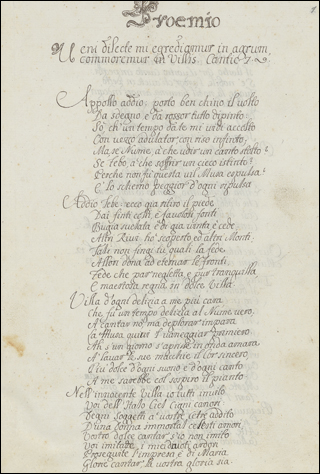 Proemio
Veni dilecte mi egrediamur in agrum
commoremur in Villis. Cantic. 7.
Appollo addio: porto ben chino il volto
Da sdegno, e da rossor tutto dipinto:
So ch'un tempo da te mi vidi accolto
Con vezzo adulator, con riso infinto;
Ma se Nume, à che udir un canto stolto?
Se Febo, à che soffrir un cieco istinto?
Perche non fù questa vil Musa expulsa?
E lo scherno peggior d'ogni repulsa
Addio Febo: ecco già ritiro il piede
Dai finti colli, e favolosi fonti
Bugia svelata è di già vinta, e cede
Altri Rivi hò scoperto, ed altri Monti.
Tali non finge tù quali la fede
Allori dona ad eternar le fronti
Fede che par negletta, e pur tranquilla
E maestosa regna in dolce Villa
Villa d'ogni delizia a me più cara
Che fù un tempo delizia al Nume vero,
A cantar nò, ma deplorar impara
La Musa, quivi l'vaneggiar primiero
Ah s'un giorno s'aprisse in onda amara
A lavar le sue macchie il cor sincero,
Piu dolce d'ogni suono, e d'ogni canto
A me sarebbe col sospiro il pianto
Nell'innocente Villa io tutti invito
Voi dell'Italo Ciel Cigni canori
Degni soggetti a vostre cetre addito
D'una donna immortal celesti amori
Vostro dolce cantar, s'io non imito
Voi imitate i miei devoti ardori
Proseguite l'impresa, e di Maria
Glorie cantar, la vostra gloria sia